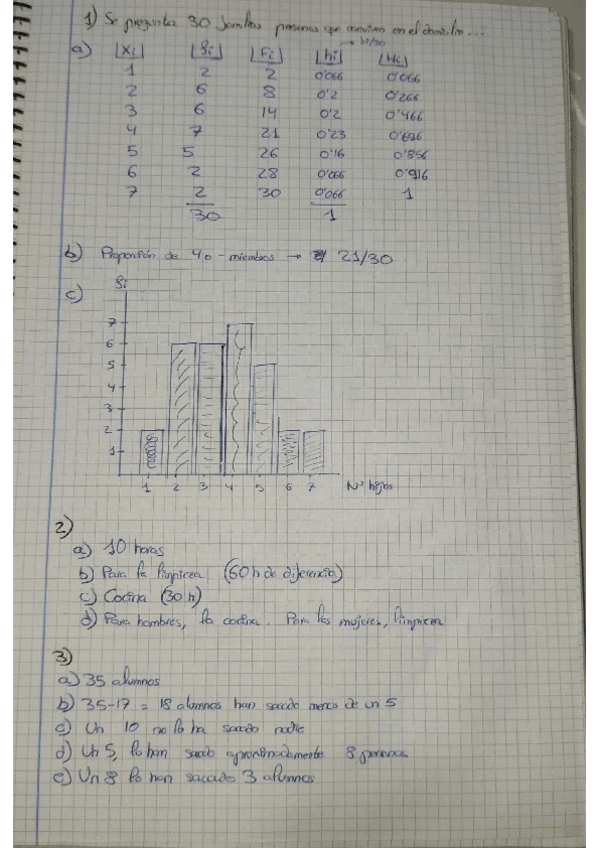 1) Se pregunta 30 familias personas que conviven en el domicilio...
→ fi/30
a) |Xi| |fi| |Fi| |hi| |Hi|
1 2 2 0'066 0'066
2 6 8 0'2 0'266
3 6 14 0'2 0'466
4 7 21 0'23 0'696
5 5 26 0'16 0'856
6 2 28 0'066 0'916
7 2 30 0'066 1
30 1
b) Proporción de 4 o - miembros → 21/30
c) fi
7
6
5
4
3
2
1
1 2 3 4 5 6 7 Nº hijos
2)
a) 10 horas
b) Para la limpieza (60 h de diferencia)
c) Cocina (30 h)
d) Para hombres, la cocina. Para las mujeres, limpieza
3)
a) 35 alumnos
b) 35-17 = 18 alumnos han sacado menos de un 5
c) Un 10 no lo ha sacado nadie
d) Un 5, lo han sacado aproximadamente 8 personas
e) Un 8 lo han sacado 3 alumnos